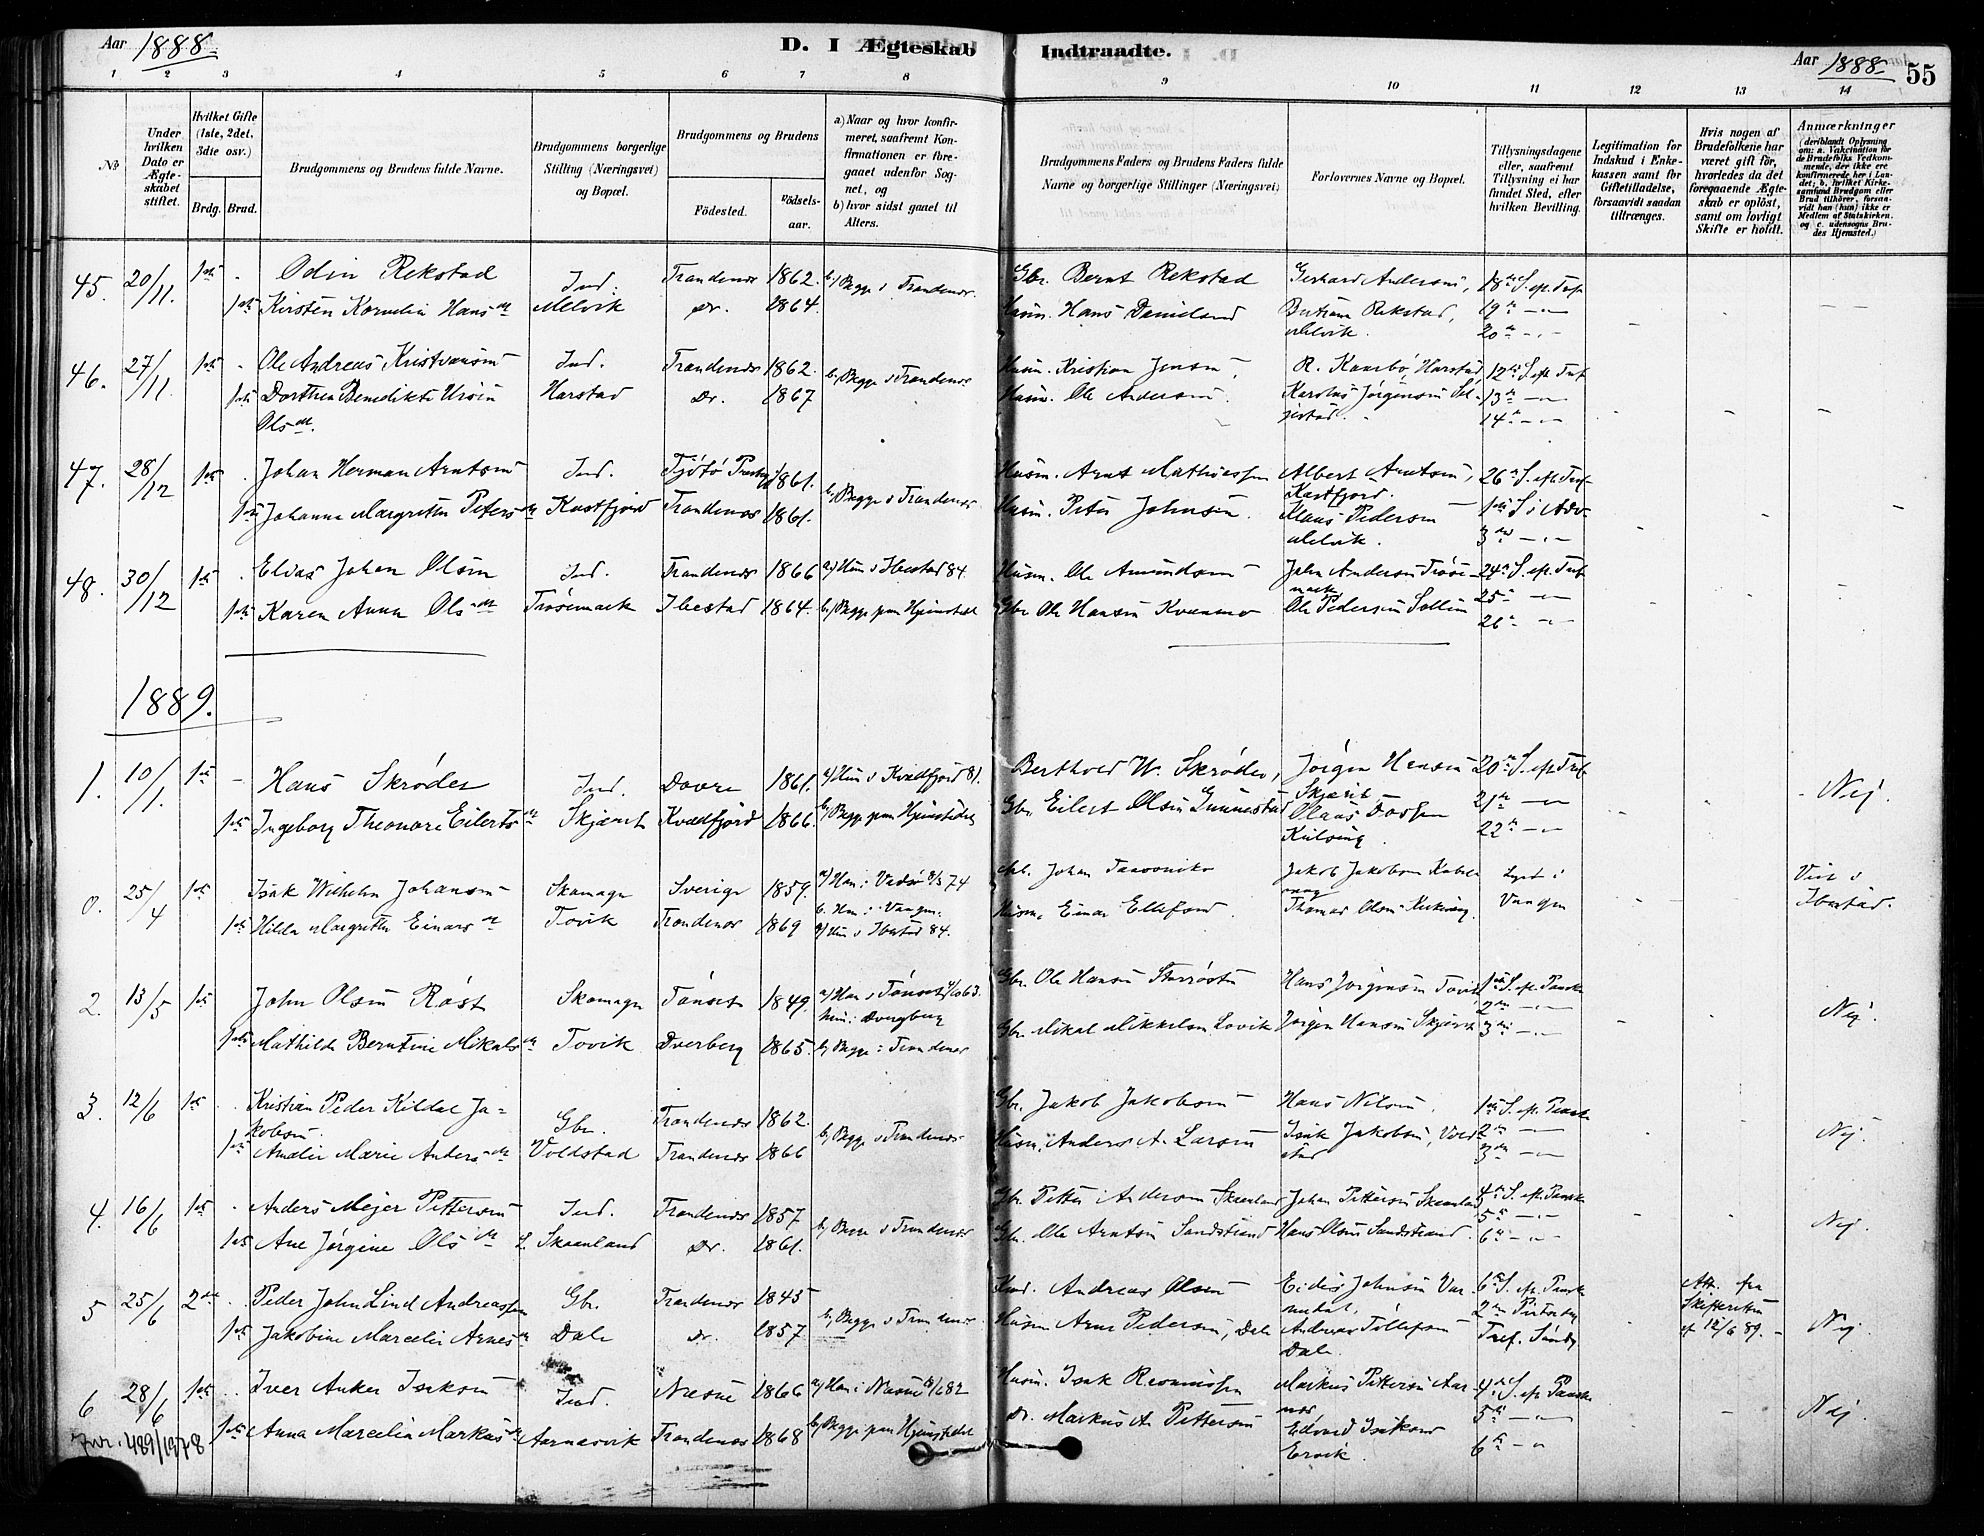 Aar 1888.
D. I Ægteskab
Indtraadte.
Aar 1888.
55
1 2 3 4 5 6 7 8 9 10 11 12 13 14
No
Under hvilken Dato er Ægteskabet stiftet.
Hvilket Gifte (1ste, 2det, 3die osv.)
Brdg. Brud.
Brudgommens og Brudens fulde Navne.
Brudgommens borgerlige Stilling (Næringsvei) og Bopæl.
Brudgommens og Brudens
Födested.
Födselsaar.
a) Naar og hvor konfirmeret, saafremt Konfirmationen er foregaaet udenfor Sognet, og
b) hvor sidst gaaet til Alters.
Brudgommens Faders og Brudens Faders fulde Navne og borgerlige Stillinger (Næringsvei)
Forlovernes Navne og Bopæl.
Tillysningsdagene eller, saafremt Tillysning ei har fundet Sted, efter hvilken Bevilling.
Legitimation for Indskud i Enkekassen samt for Giftetilladelse, forsaavidt saadan tiltrænges.
Hvis nogen af Brudefolkene har været gift för, hvorledes da det foregaaende Ægteskab er oplöst, samt om lovligt Skifte er holdt.
Anmærkninger (deriblandt Oplysning om: a. Vakcination for de Brudefolks Vedkommende, der ikke ere konfirmerede her i Landet; b. hvilket Kirkesamfund Brudgom eller Brud tilhörer, forsaavidt han (hun) ikke er Medlem af Statskirken, og c. udensogns Brudes Hjemsted.)
45. 20/11. 1ste - Odin Rekstad Ind. Trondenæs 1862. b) Begge i Trondenæs. Gbr. Bernt Rekstad Gerhard Andersen, 18de S. ef. Tref.
1ste Kirsten Kornelia Hansdt Melvik Do. 1864. Husm. Hans Danielsen Bertheus Rekstad, 19de
Melvik. 20de
46. 27/11. 1ste - Ole Andreas Kristiansen Ind. Trondenæs 1862. b, Begge i Trondenæs Husm. Kristian Jensen, R. Kaarbø, Harstad, 12te S. eft. Tref
1ste Dorthea Benedikte Ursin Harstad Do. 1867 Husm. Ole Andersen. Karolus Jørgensen Sel- 13de
Olsdt. jestad. 14de
47. 28/12 1ste - Johan Herman Arntsen Ind. Tjøtø Prestegj. 1861. b, Begge i Trondenæs. Husm. Arnt Mathiassen Albert Arntsen, 26de S. eft. Tref
Kastfjord.
1ste Johanna Margrethe Petersdt Kastfjord Trondenæs 1861. Husm. Peter Johnsen. Klaus Pedersen 1ste S. i Adv.
Melvik. 3die
48. 30/12 1ste - Elias Johan Olsen Ind. Trondenæs 1866 a) Hun i Ibestad 84. Husm. Ole Amundsen John Andersen Trøse- 24de S. ef. Tref
mark
1ste Karen Anna Olsdt Trøsemark Ibestad 1864. b, Begge paa Hjemstedet Gbr. Ole Hansen Kvanmo Ole Pedersen Sollien 25de
26de
1889.
1. 10/1. 1ste - Hans Skrøder Ind. Dovre 1861. a) Hun i Kvædfjord 81. Berthold W. Skrøder, Jørgen Hansen 20de S. ef. Tref
Skjærit 21de Nej.
1ste Ingeborg Theonore Eilertsdt Skjærit Kvædfjord 1866. b, Begge paa Hjemstedet Gbr. Eilert Olsen Gunnestad Olaus Dossen 22de
Kilseng.
0. 25/4 1ste Isak Wilhelm Johansen Skomager Sverige 1859. a) Han i Vadsø 8/5 74 Johan Jakob Jakobsen Lyst i Viet i
b. Han i Vangen.
1ste Hilda Margrethe Einarsdt Tovik Trondenæs 1869 a) Hun i Ibestad 84. Husm. Einar Ellefsen. Thomas Olsen Vangen Ibestad.
2. 13/5 1ste John Olsen Røst Skomager Tønset 1849. a) Han i Tønset 63. Gbr. Ole Hansen Hans Jørgensen Tovik 1ste S. ef. Paaske
Hun i Dverberg 2den Nej.
1ste Mathilde Berntine Mikalsdt Tovik Dverberg 1865. b) Begge i Trondenæs Gbr. Mikal Mikkelsen Lovik Jørgen Hansen Skjærit 3die
3. 12/6 1ste - Kristian Peder Kildal Ja- Gbr. Trondenæs 1862. b) Begge i Trondenæs Gbr. Jakob Jakobsen Hans Nilsen. 1ste S. ef. Paaske
kobsen.
1ste Amalie Marie Andersdt Voldstad Trondenæs 1866 Husm. Anders A. Larsen Isak Jakobsen, Vold- 2den Nej.
stad 3die
4. 16/6 1ste - Anders Mejer Pettersen Ind. Trondenæs 1857 b, Begge i Trondenæs Gbr. Petter Andersen Skaanland Johan Pettersen Skaanland 4de S. ef. Paaske
5te Nej.
1ste Ane Jørgine Olsdt L. Skaanland Do. 1861. Gbr. Ole Arntsen Sandstrand Hans Olsen Sandstrand. 6te
5 25/6 2det - Peder John Lind Andreassen Gbr. Trondenæs 1845 b) Begge i Trondenæs. Andreas Olsen Eidis Johnsen Var- 6te S. ef. Paaske Att. fra
mdal. 2den Pintsedag Skifteretten
1ste Jakobine Marcelie Arnesdt Dale Do. 1857. Husm Arne Pedersen, Dale Andreas Tollefsen Tref. Søndg af 12/6 89. Nej.
Dale.
6 28/6 1ste - Iver Anker Isaksen Ind. Næsne 1866 a) Han i Næsne 82 Husm. Isak Rasmussen Markus Pettersen Aar- 4de S. ef. Paaske
næs 5te Nej
1ste Anna Marcelia Markusdt Aarnæsvik Trondenæs 1868 b, Begge paa Hjemstedet Do. Markus A. Pettersen Edvard Isaksen
Ervik. 6te
Jnr. 489/1978